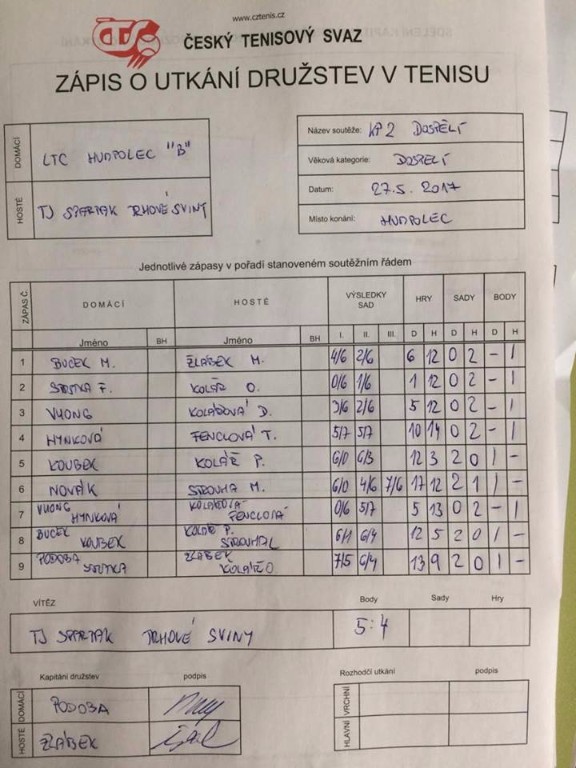 www.cztenis.cz
ČTS
ČESKÝ TENISOVÝ SVAZ
ZÁPIS O UTKÁNÍ DRUŽSTEV V TENISU
DOMÁCÍ LTC HUMPOLEC "B"
HOSTÉ TJ SPARTAK TRHOVÉ SVINY
Název soutěže: KP2 DOSPĚLÍ
Věková kategorie: DOSPĚLÍ
Datum: 27.5. 2017
Místo konání: HUMPOLEC
Jednotlivé zápasy v pořadí stanoveném soutěžním řádem
ZÁPAS Č. DOMÁCÍ HOSTÉ VÝSLEDKY SAD HRY SADY BODY
Jméno BH Jméno BH I. II. III. D H D H D H
1 BUCEK M. ŽLÁBEK M. 4/6 2/6 6 12 0 2 - 1
2 KOLÁŘ O. 0/6 1/6 1 12 0 2 - 1
3 VUONG KOLÁŘOVÁ D. 3/6 2/6 5 12 0 2 - 1
4 HYNKOVÁ FENCLOVÁ T. 5/7 5/7 10 14 0 2 - 1
5 KOUBEK KOLÁŘ P. 6/0 6/3 12 3 2 0 1 -
6 NOVÁK STROUHA M. 6/0 4/6 7/6 17 12 2 1 1 -
7 VUONG HYNKOVÁ KOLÁŘOVÁ FENCLOVÁ 0/6 5/7 5 13 0 2 - 1
8 BUCEK KOUBEK KOLÁŘ P. STROUHAL 6/1 6/4 12 5 2 0 1 -
9 PODOBA ŽLÁBEK KOLÁŘ O 7/5 6/4 13 9 2 0 1 -
VÍTĚZ Body Sady Hry
TJ SPARTAK TRHOVÉ SVINY 5:4
Kapitáni družstev podpis
DOMÁCÍ PODOBA
HOSTÉ ŽLÁBEK
Rozhodčí utkání podpis
VRCHNÍ
HLAVNÍ